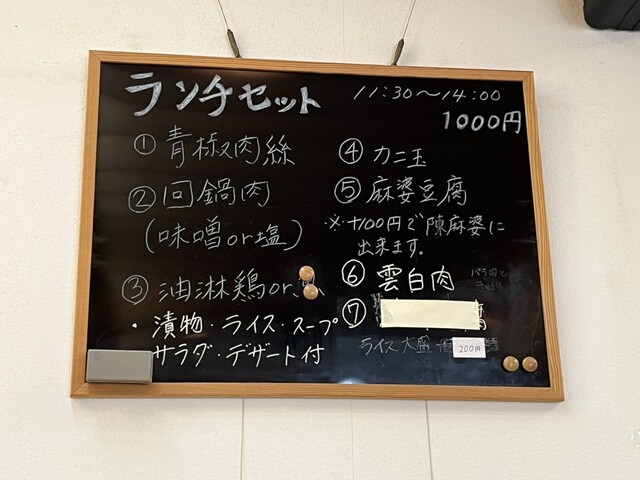 ランチセット 11:30～14:00
1000円
① 青椒肉絲
② 回鍋肉
(味噌or塩)
③ 油淋鶏or
・漬物・ライス・スープ
サラダ・デザート付
④ カニ玉
⑤ 麻婆豆腐
※+100円で陳麻婆に
出来ます。
⑥ 雲白肉 バラ肉と
⑦
ライス大盛 200円